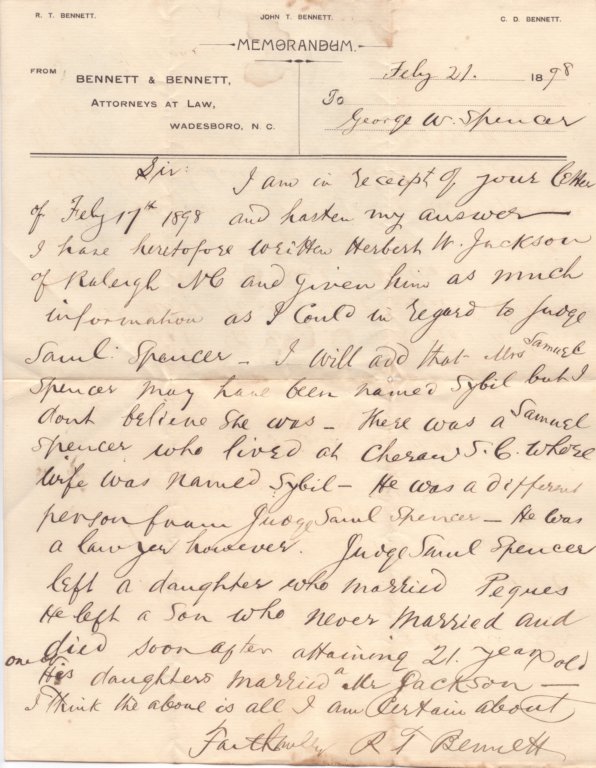 R. T. BENNETT. JOHN T. BENNETT. C. D. BENNETT.
MEMORANDUM.
FROM
BENNETT & BENNETT,
ATTORNEYS AT LAW,
WADESBORO, N. C.
Feby 21. 1898
To
George W. Spencer
Sir: I am in receipt of your letter
of Feby 17th 1898 and hasten my answer
I have heretofore written Herbert W. Jackson
of Raleigh NC and given him as much
information as I could in regard to Judge
Saml. Spencer - I will add that Mrs Samuel
Spencer may have been named Sybil but I
dont believe she was - There was a Samuel
Spencer who lived at Cheraw S.C. whose
wife was named Sybil - He was a different
person from Judge Saml Spencer - He was
a lawyer however. Judge Saml Spencer
left a daughter who married Pegues
He left a son who never married and
died soon after attaining 21. years old
one of His daughters married a Mr Jackson -
I think the above is all I am certain about
Faithfully R T Bennett